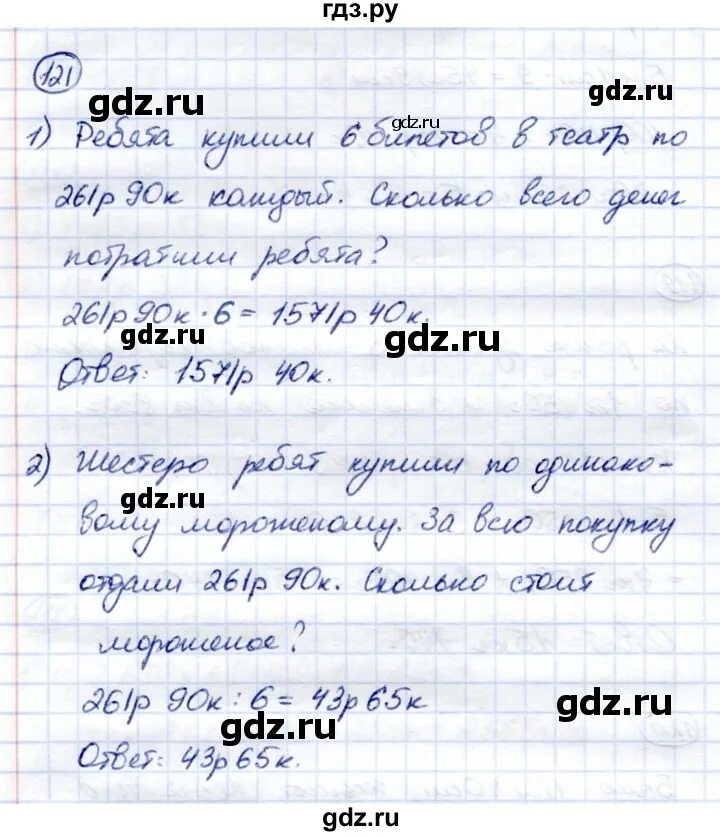 гдз.ру
121
gdz.ru
gdz.ru
1) Ребята купили 6 билетов в театр по
gdz.ru
261р 90к каждый. Сколько всего денег
потратили ребята?
261р 90к · 6 = 1571р 40к.
gdz.ru
gdz.ru
Ответ: 1571р 40к.
2) Шестеро ребят купили по одинако-
gdz.ru
вому мороженому. За всю покупку
отдали 261р 90к. Сколько стоит
мороженое?
261р 90к : 6 = 43р 65к
gdz.ru
gdz.ru
Ответ: 43р 65к.
gdz.ru